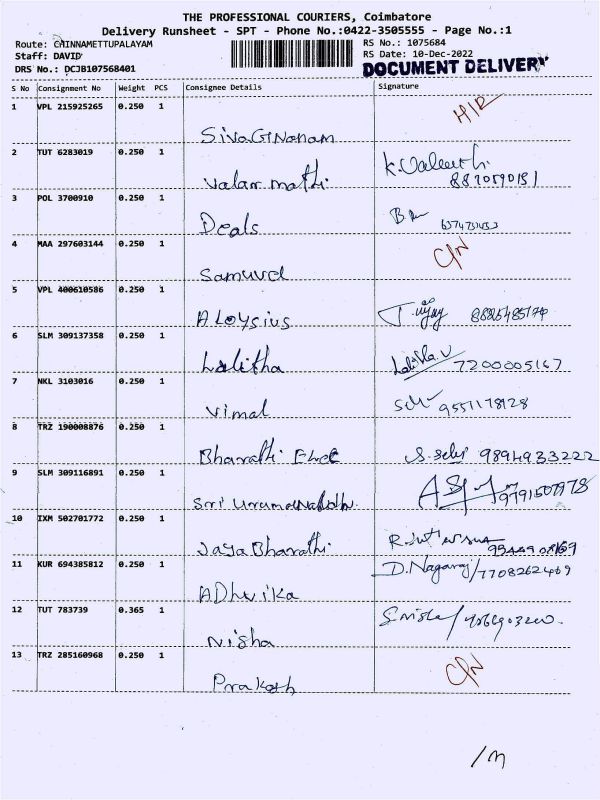 THE PROFESSIONAL COURIERS, Coimbatore
Delivery Runsheet - SPT - Phone No.:0422-3505555 - Page No.:1
Route: CHINNAMETTUPALAYAM RS No.: 1075684
Staff: DAVID RS Date: 10-Dec-2022
DRS No.: DCJB107568401 DOCUMENT DELIVERY
S No Consignment No Weight PCS Consignee Details Signature
1 VPL 215925265 0.250 1
2 TUT 6283019 0.250 1 Valar mathi
3 POL 3700910 0.250 1 Deals
4 MAA 297603144 0.250 1 Samuvel C/N
5 VPL 400610586 0.250 1 ALoysius
6 SLM 309137358 0.250 1 Lalitha Lalitha.V 7200005167
7 NKL 3103016 0.250 1 Vimal 9551178128
8 TRZ 190008876 0.250 1 Bharathi S. selvi 9894933222
9 SLM 309116891 0.250 1 Sri
10 IXM 502701772 0.250 1 Jaya Bharathi
11 KUR 694385812 0.250 1 ADhvika D. Nagaraj / 7708262469
12 TUT 783739 0.365 1 Nisha
13 TRZ 285160968 0.250 1 Prakash C/N